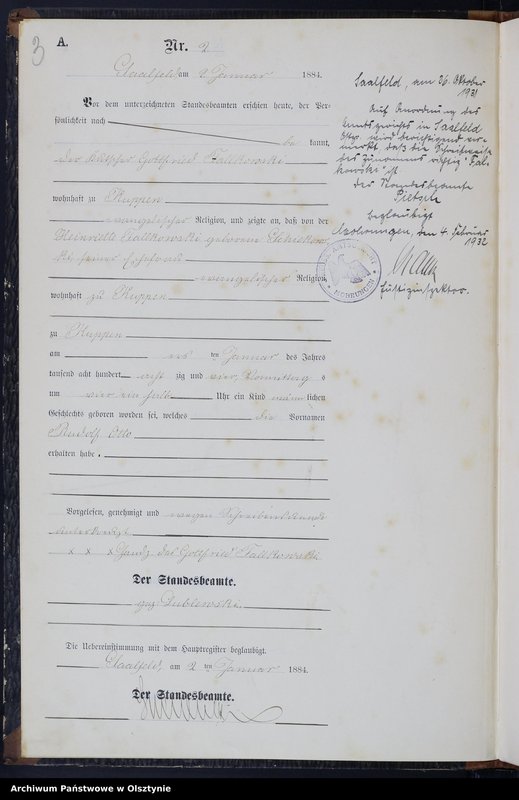 3
A.
Nr. 2
Saalfeld am 2 Januar 1884.
Vor dem unterzeichneten Standesbeamten erschien heute, der Per-
sönlichkeit nach
be kannt,
der Kutscher Gottfried Falkowski
wohnhaft zu Kuppen
evangelischer Religion, und zeigte an, daß von der
Henriette Falkowski geborenen
seiner Ehefrau
evangelischer Religion,
wohnhaft zu Kuppen
zu Kuppen
am ersten Januar des Jahres
tausend acht hundert acht zig und vier Vormittag s
um vier ein halb Uhr ein Kind männ lichen
Geschlechts geboren worden sei, welches die Vornamen
Rudolf Otto
erhalten habe.
Vorgelesen, genehmigt und wegen Schreibensunkunde
unterkreuzt
x x x Handz. des Gottfried Falkowski
Der Standesbeamte.
gez. Dublewski
Die Uebereinstimmung mit dem Hauptregister beglaubigt.
Saalfeld, am 2 ten Januar 1884.
Der Standesbeamte.
Saalfeld, am 26. Oktober
1931
Auf Anordnung des
Amtsgerichts in Saalfeld
Ostpr. wird berichtigend ver-
merkt, daß die Schreibweise
des Zunamens richtig "Fal-
kowski" ist.
Der Standesbeamte
Pietsch
beglaubigt
Mohrungen, den 4. Februar
1932
Justizinspektor.
MOHRUNGEN
Archiwum Państwowe w Olsztynie